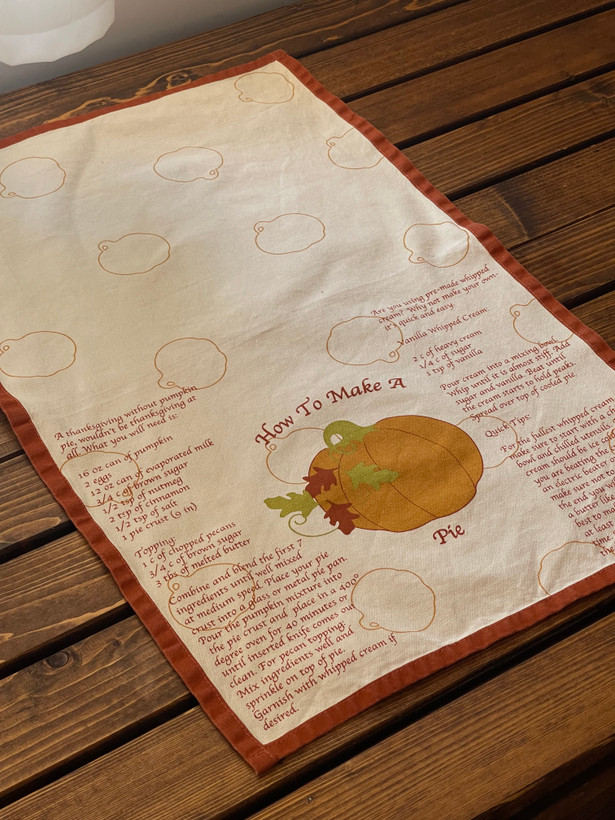 A thanksgiving without pumpkin
pie, wouldn't be thanksgiving at
all. What you will need is:
16 oz can of pumpkin
2 eggs
12 oz can of evaporated milk
3/4 c of brown sugar
1/2 tsp of nutmeg
2 tsp of cinnamon
1/2 tsp of salt
1 pie crust (9 in)
Topping:
1 c of chopped pecans
3/4 c of brown sugar
3 tbs of melted butter
Combine and blend the first 7
ingredients until well mixed
at medium speed. Place your pie
crust into a glass or metal pie pan.
Pour the pumpkin mixture into
the pie crust and place in a 400°
degree oven for 40 minutes or
until inserted knife comes out
clean. For pecan topping:
Mix ingredients well and
sprinkle on top of pie.
Garnish with whipped cream if
desired.
How To Make A
Pie
Are you using pre-made whipped
cream? Why not make your own-
it's quick and easy.
Vanilla Whipped Cream:
2 c of heavy cream
1/4 c of sugar
1 tsp of vanilla
Pour cream into a mixing bowl.
Whip until it is almost stiff. Add
sugar and vanilla. Beat until
the cream starts to hold peaks.
Spread over top of cooled pie.
Quick Tips:
For the fullest whipped cream
make sure to start with a
bowl and chilled utensils
cream should be ice
you are beating the
at electric beater
make sure not
a butter
the end you
best to
at least